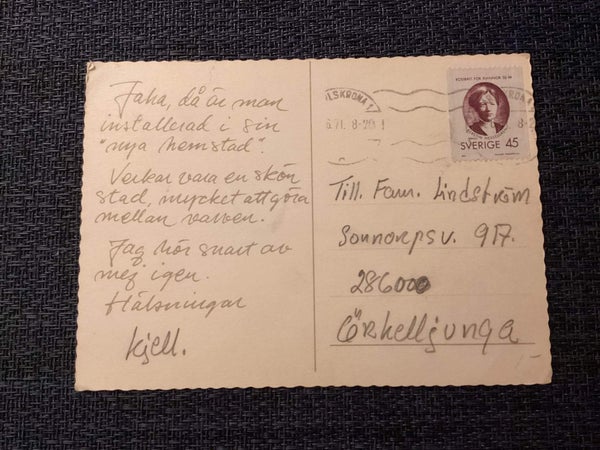 Jaha, då är man
installerad i sin
"nya hemstad".
Verkar vara en skön
stad, mycket att göra
mellan varven.
Jag hör snart av
mej igen.
Hälsningar
Kjell.
LSKRONA 1
6.71. 8-20
8-
RÖSTRÄTT FÖR KVINNOR 50 ÅR
SVERIGE 45
Till. Fam. Lindström
Sonnarpsv. 917.
28600
Örkelljunga